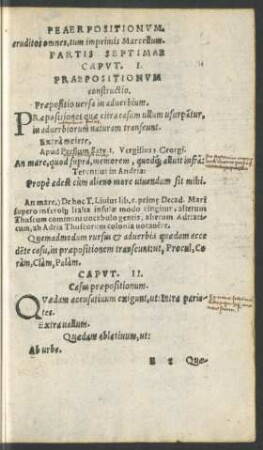 PEAERPOSITIONVM.
eruditos omnes, tum imprimis Marcellum.
PARTIS SEPTIMAE
CAPVT. I.
PRAEPOSITIONVM
constructio.
Præpositio uersa in aduerbium.
PRæpositiones quæ citra casum ullum usurpãtur,
in aduerbiorum naturam transeunt.
Extrà meire,
Apud Persium Saty. I. Vergilius I. Georgi.
An mare, quod suprà, memorem, quodq́; alluit infrà:
Terentius in Andria:
Propè adest cùm alieno more uiuendum sit mihi.
An mare,) De hoc T. Liuius lib. 5. primę Decad. Mari
supero inferoq́; Italia insulæ modo cingitur, alterum
Thuscum communi uocabulo gentis, alterum Adriati-
cum, ab Adria Thuscorum colonia uocauêre.
Quemadmodum rursus & aduerbia quædam acce
dẽte casu, in præpositionem transeunt: ut, Procul, Co-
ràm, Clàm, Palàm.
CAPVT. II.
Casus præpositionum.
QVædam accusatiuum exigunt, ut: Intra parie-
tes.
Extra uallum.
Quædam ablatiuum, ut:
Ab urbe.
Quæ-